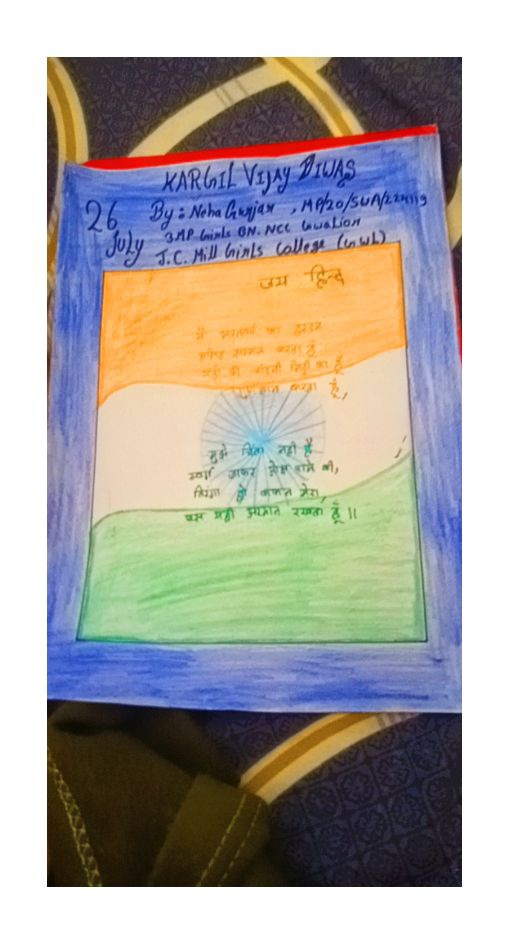 KARGIL VIJAY DIWAS
26 July
By: Neha Gurjar, MP/20/SWA/224119
3MP Girls BN. NCC Gwalior
J.C. Mill Girls College (GWL)
जय हिन्द
मैं भारतवर्ष का हरदम
अमिट सम्मान करता हूँ
यहाँ की चांदनी मिट्टी का हूँ
गुणगान करता हूँ,
मुझे चिंता नहीं है
स्वर्ग जाकर मोक्ष पाने की,
तिरंगा हो कफ़न मेरा,
बस यही अरमान रखता हूँ ॥